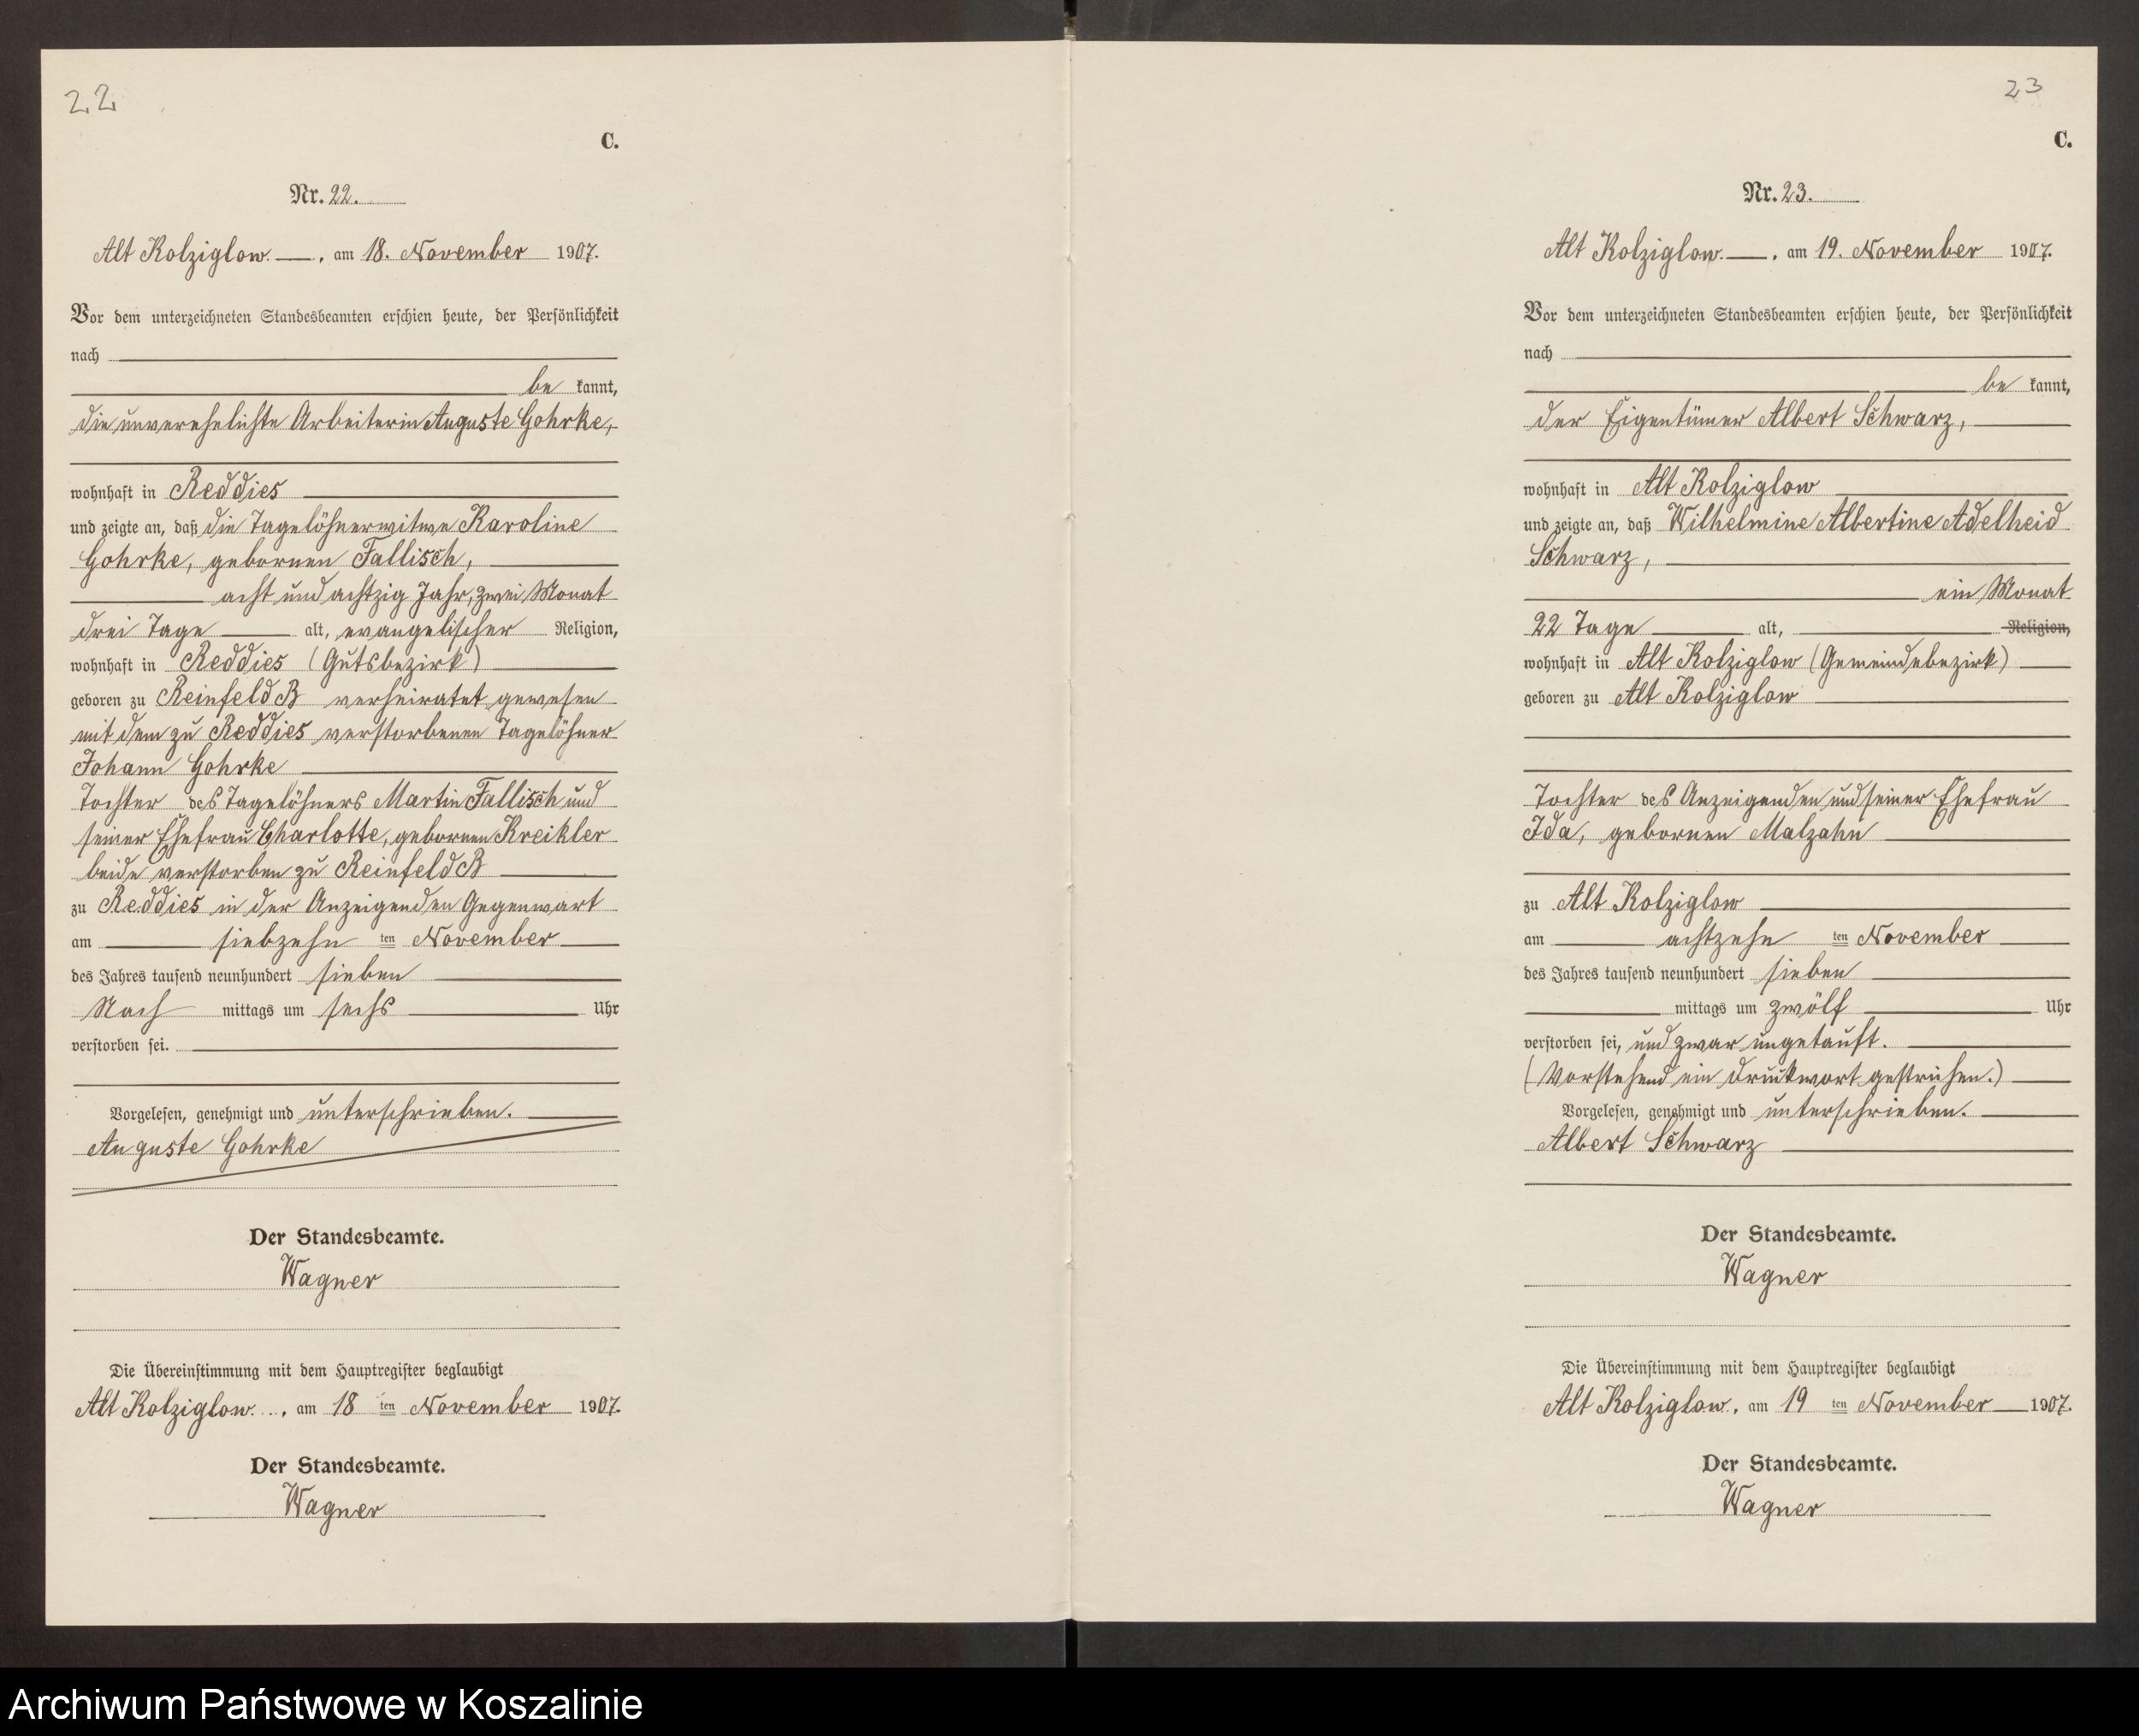 22
C.
Nr. 22.
Alt Kolziglow. —, am 18. November 1907.
Vor dem unterzeichneten Standesbeamten erschien heute, der Persönlichkeit
nach
be kannt,
die unverehelichte Arbeiterin Auguste Gohrke,
wohnhaft in Reddies
und zeigte an, daß die Tagelöhnerwitwe Karoline
Gohrke, gebornen Fallisch,
acht und achtzig Jahr, zwei Monat
drei Tage alt, evangelischer Religion,
wohnhaft in Reddies (Gutsbezirk)
geboren zu Reinfeld B verheiratet gewesen
mit dem zu Reddies verstorbenen Tagelöhner
Johann Gohrke
Tochter des Tagelöhners Martin Fallisch und
seiner Ehefrau Charlotte, gebornen Kreikler
beide verstorben zu Reinfeld B
zu Reddies in der Anzeigenden Gegenwart
am siebzehn ten November
des Jahres tausend neunhundert sieben
Nach mittags um sechs Uhr
verstorben sei.
Vorgelesen, genehmigt und unterschrieben.
Auguste Gohrke
Der Standesbeamte.
Wagner
Die Übereinstimmung mit dem Hauptregister beglaubigt
Alt Kolziglow, am 18 ten November 1907.
Der Standesbeamte.
Wagner
23
C.
Nr. 23.
Alt Kolziglow. —, am 19. November 1907.
Vor dem unterzeichneten Standesbeamten erschien heute, der Persönlichkeit
nach
be kannt,
der Eigentümer Albert Schwarz,
wohnhaft in Alt Kolziglow
und zeigte an, daß Wilhelmine Albertine Adelheid
Schwarz,
ein Monat
22 Tage alt, Religion,
wohnhaft in Alt Kolziglow (Gemeindebezirk)
geboren zu Alt Kolziglow
Tochter des Anzeigenden und seiner Ehefrau
Ida, gebornen Malzahn
zu Alt Kolziglow
am achtzehn ten November
des Jahres tausend neunhundert sieben
mittags um zwölf Uhr
verstorben sei, und zwar ungetauft.
(Vorstehend ein Druckwort gestrichen.)
Vorgelesen, genehmigt und unterschrieben.
Albert Schwarz
Der Standesbeamte.
Wagner
Die Übereinstimmung mit dem Hauptregister beglaubigt
Alt Kolziglow, am 19 ten November 1907.
Der Standesbeamte.
Wagner
Archiwum Państwowe w Koszalinie